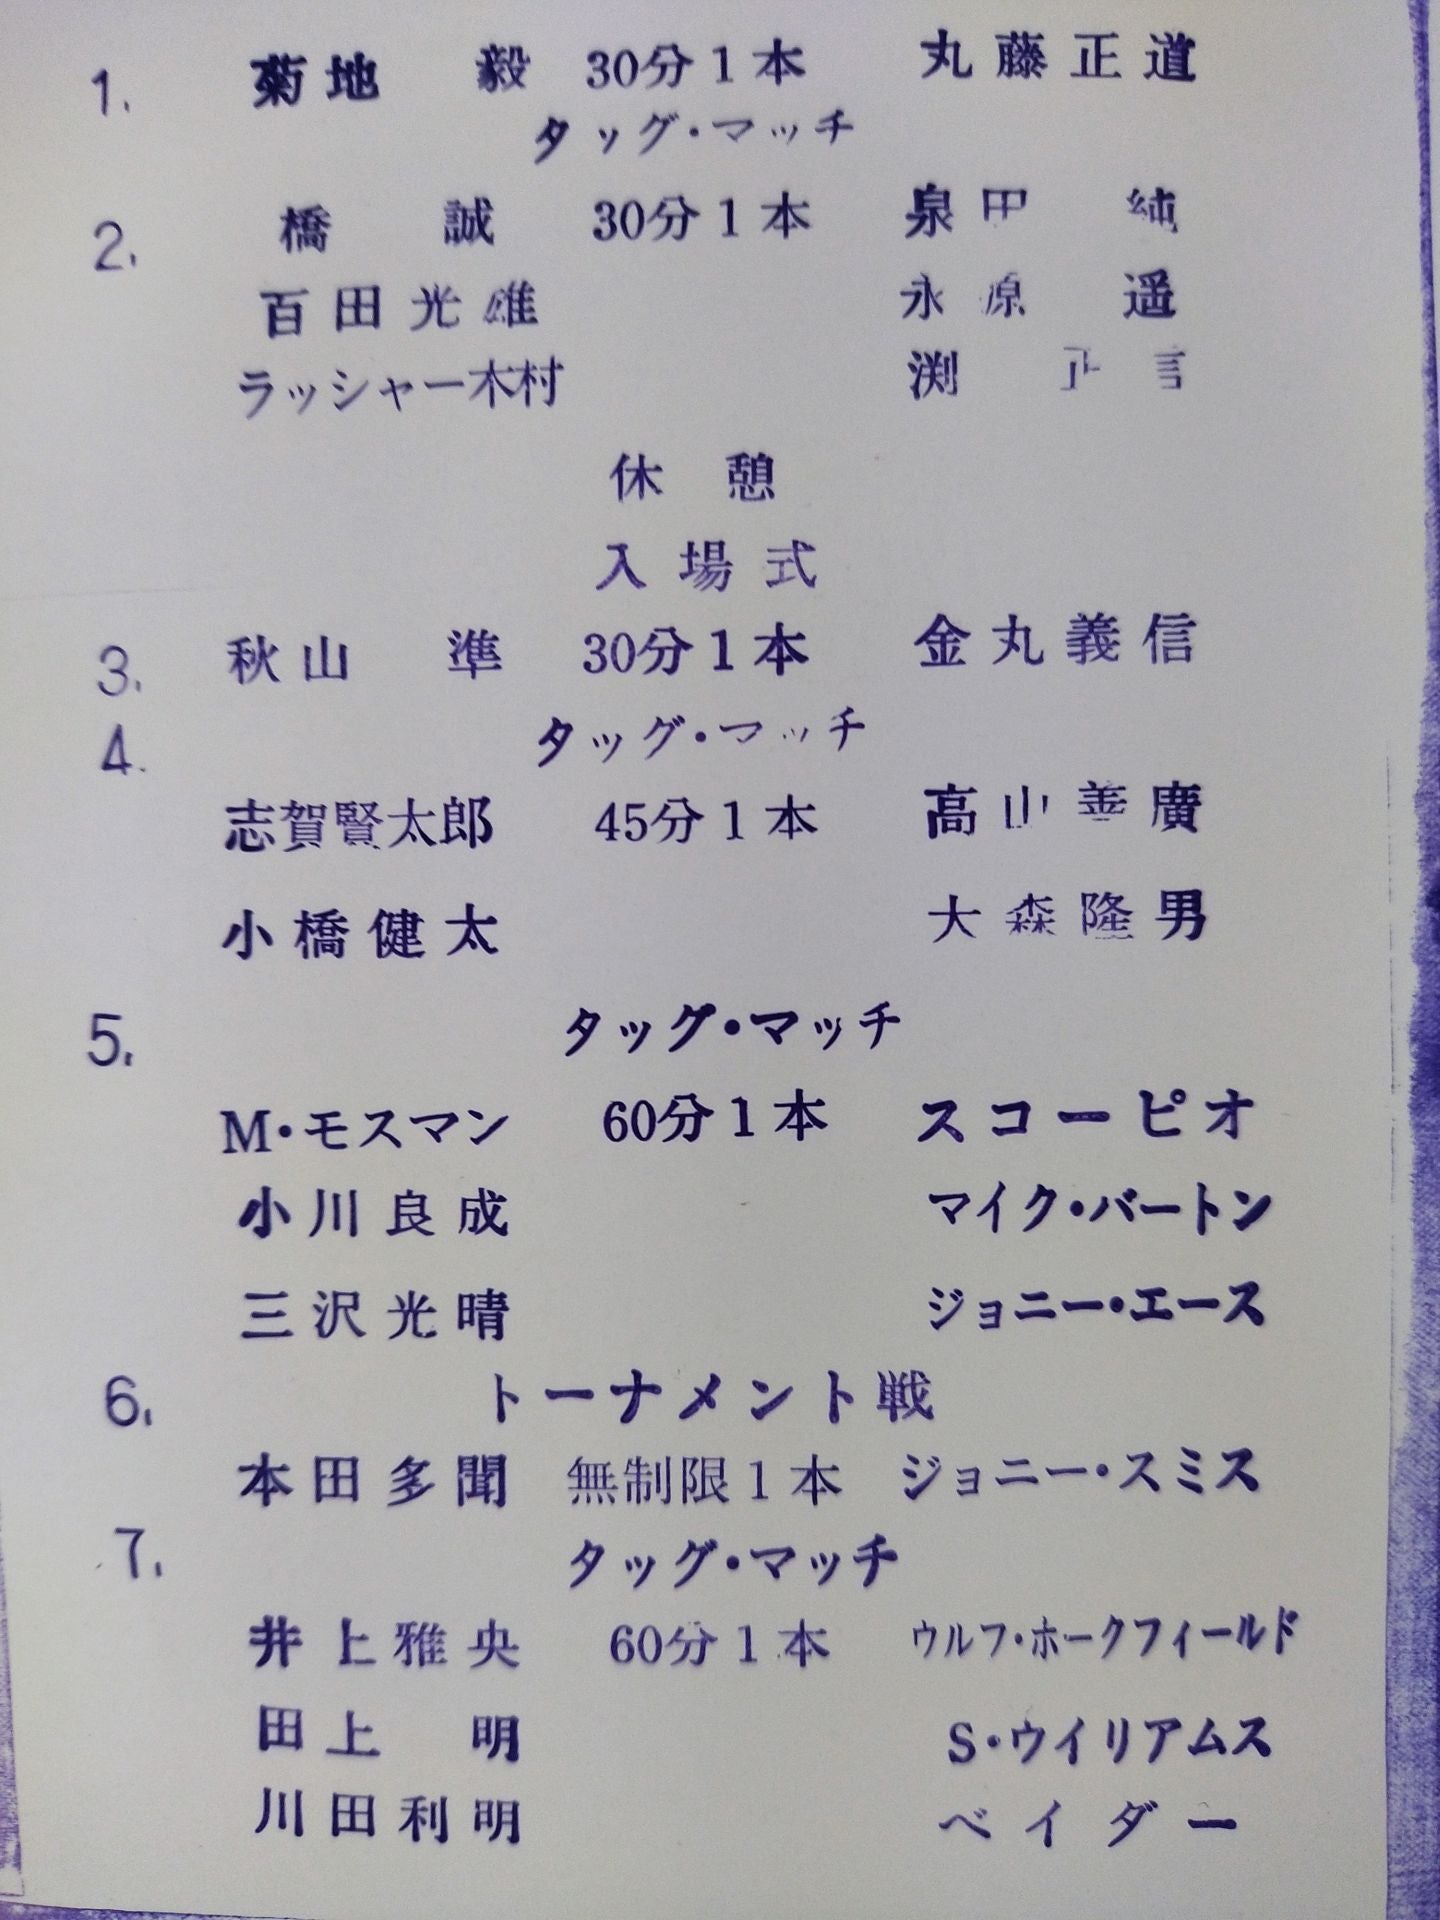 1. 菊地 毅 30分1本 丸藤正道
タッグ・マッチ
2. 橋 誠 30分1本 泉田 純
百田光雄 永原 遥
ラッシャー木村 渕 正信
休憩
入場式
3. 秋山 準 30分1本 金丸義信
4. タッグ・マッチ
志賀賢太郎 45分1本 高山善廣
小橋健太 大森隆男
5. タッグ・マッチ
M・モスマン 60分1本 スコーピオ
小川良成 マイク・バートン
三沢光晴 ジョニー・エース
6. トーナメント戦
本田多聞 無制限1本 ジョニー・スミス
7. タッグ・マッチ
井上雅央 60分1本 ウルフ・ホークフィールド
田上 明 S・ウイリアムス
川田利明 ベイダー